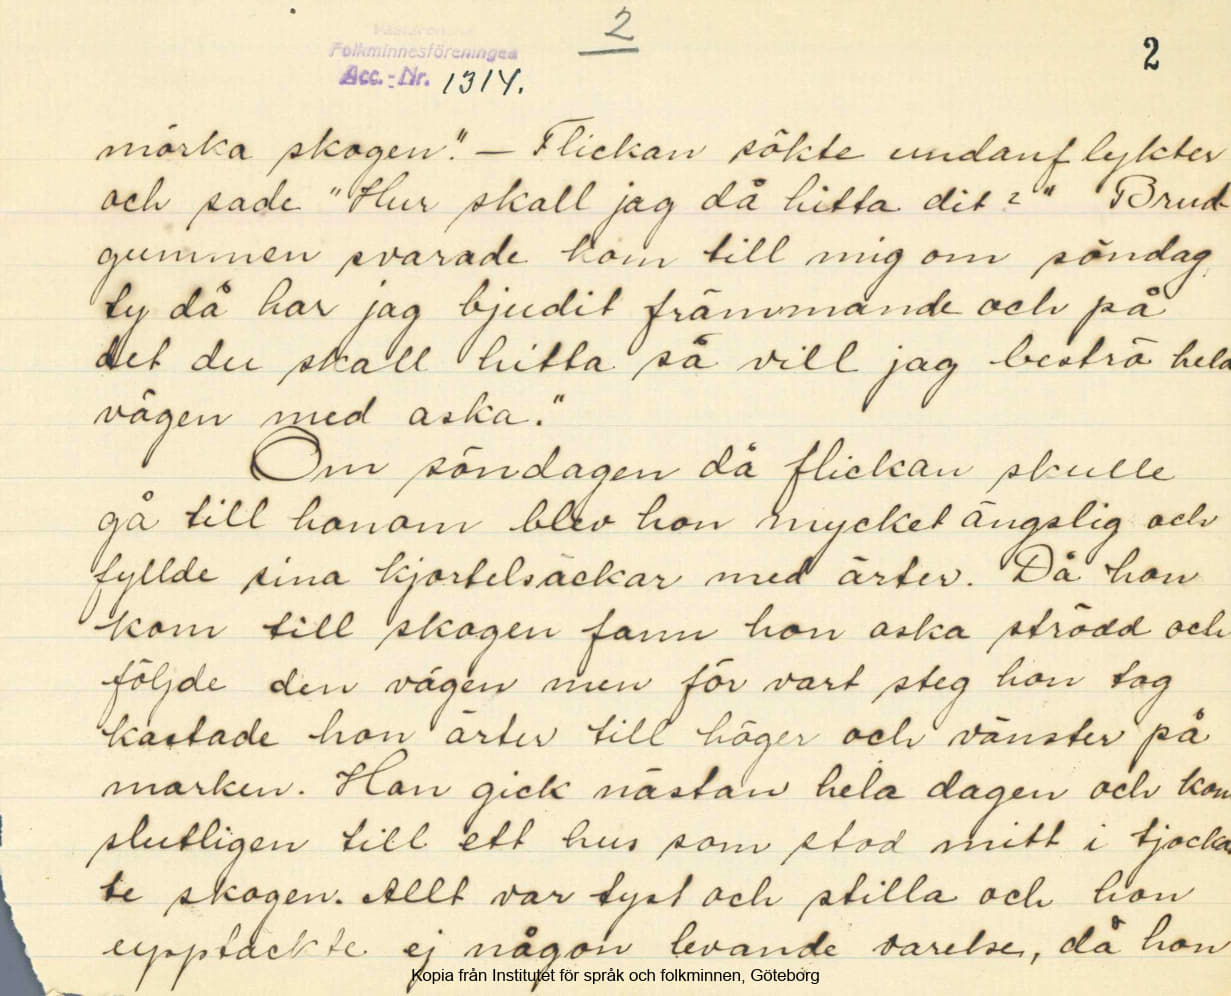 2
2
Folkminnesföreningen
Acc.-Nr. 1314.
mörka skogen." — Flickan sökte undanflykter
och sade "Hur skall jag då hitta dit?" Brud-
gummen svarade kom till mig om söndag
ty då har jag bjudit främmande och på
det du skall hitta så vill jag beströ hela
vägen med aska."
Om söndagen då flickan skulle
gå till honom blev hon mycket ängslig och
fyllde sina kjortelsäckar med ärter. Då hon
kom till skogen fann hon aska strödd och
följde den vägen men för vart steg hon tog
kastade hon ärter till höger och vänster på
marken. Hon gick nästan hela dagen och kom
slutligen till ett hus som stod mitt i tjocka
te skogen. Allt var tyst och stilla och hon
upptäckte ej någon levande varelse, då hon
Kopia från Institutet för språk och folkminnen, Göteborg